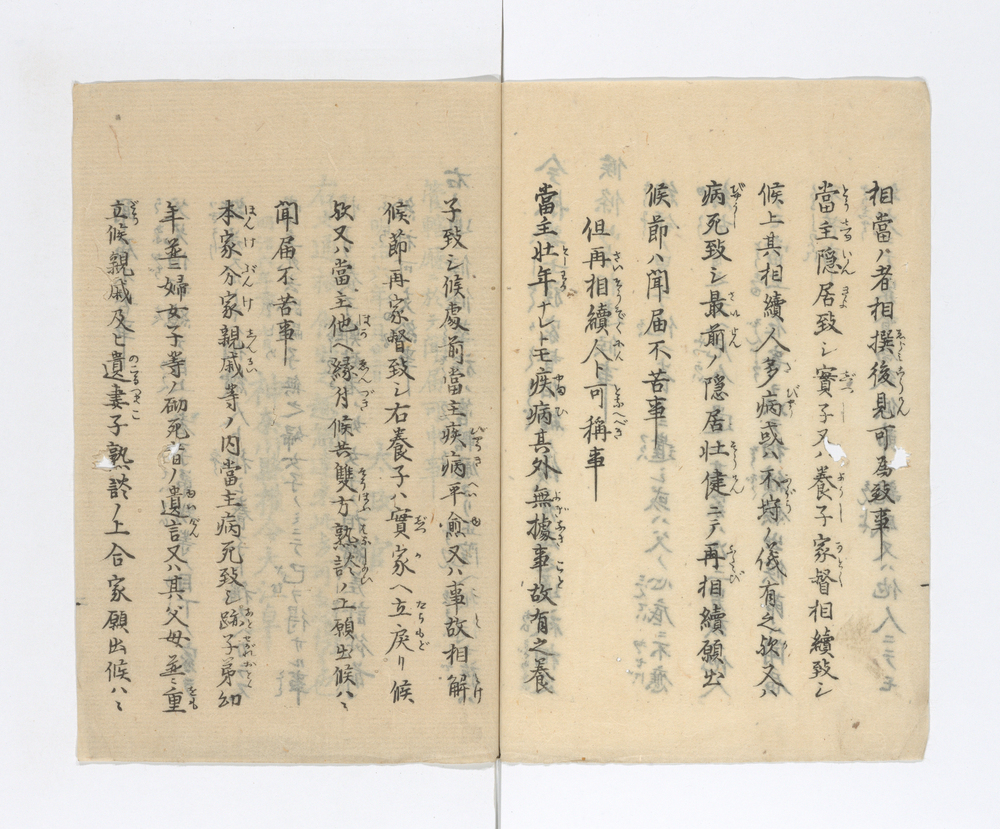 相當ノ者相撰後見可為致事
當主隠居致シ實子又ハ養子家督相續致シ
候上其相續人多病或ハ不埒ノ儀有之欤又ハ
病死致シ最前ノ隠居壮健ニテ再相續願出
候節ハ聞届不苦事
但再相續人ト可稱事
當主壮年ナレトモ疾病其外無據事故有之養
子致シ候處前當主疾病平愈又ハ事故相解
候節再家督致シ右養子ハ實家ヘ立戻リ候
欤又ハ當主他ヘ縁付候共雙方熟談ノ上願出候ハヽ
聞届不苦事
本家分家親戚等ノ内當主病死致シ跡子弟幼
年並ニ婦女子等ノ砌死者ノ遺言又ハ其父母並ニ重
立候親戚及ヒ遺妻子熟談ノ上合家願出候ハヽ